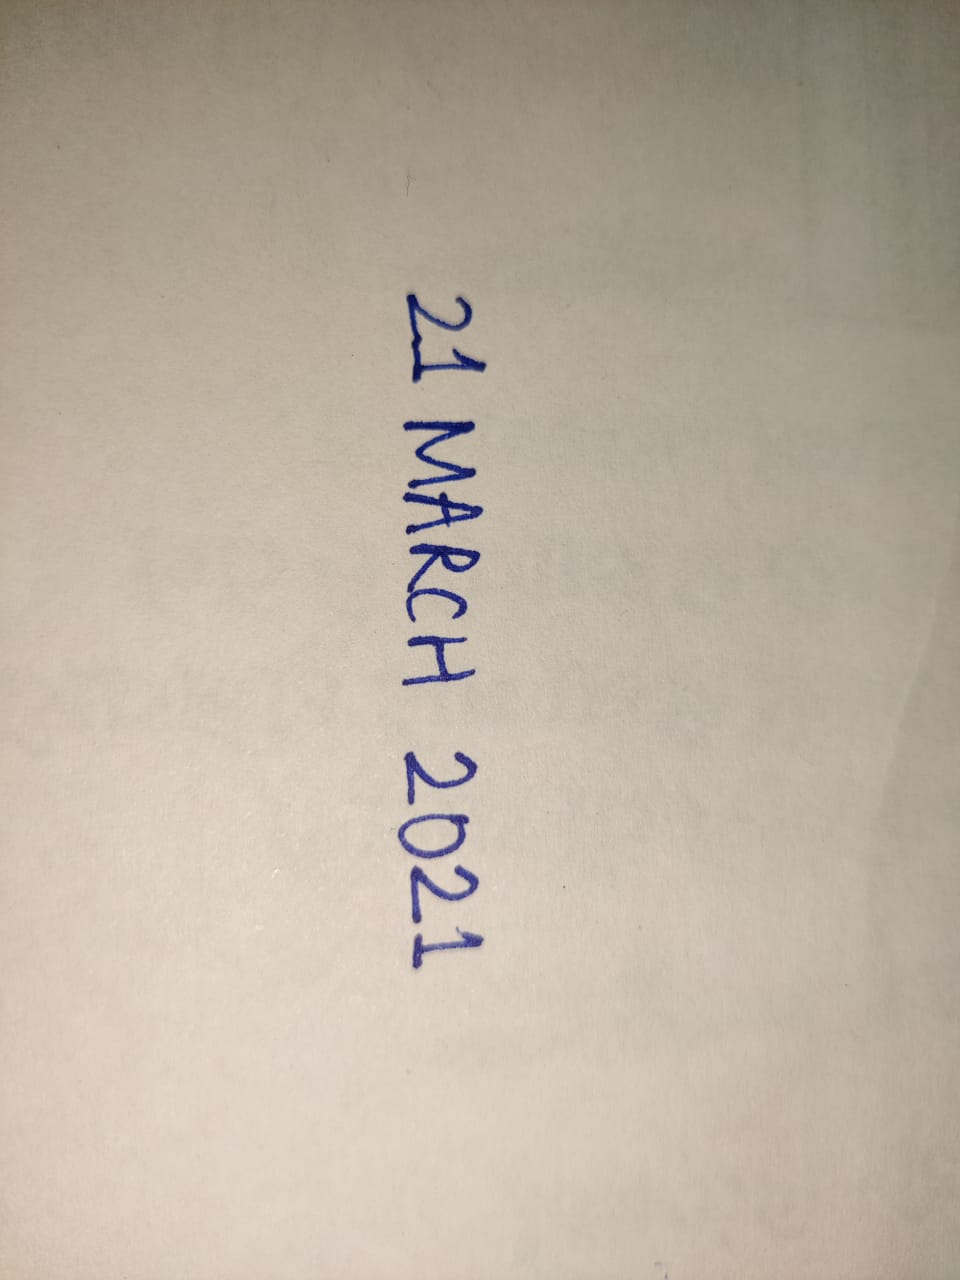 21 MARCH 2021